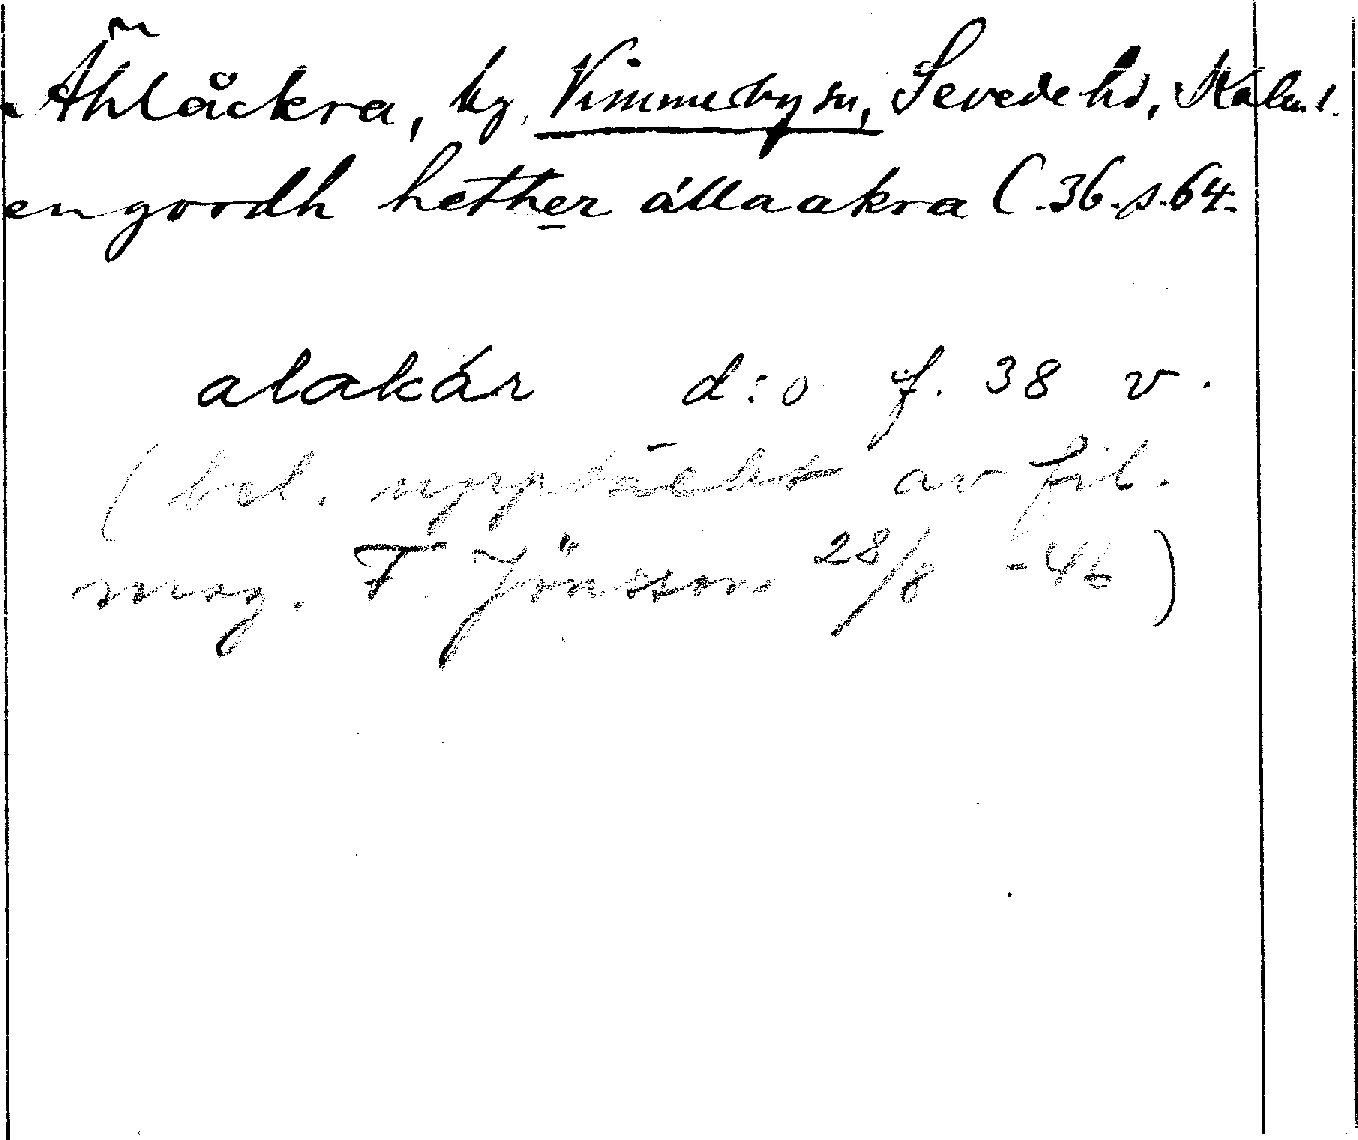 Åhlåckra, by, Vimmerby sn, Sevede hd, Kalm. l.
en goodh hether állaakra C.36.s.64.
alakár d:o f. 38 v.
(bel. upptäckt av fil.
mag. F. Jönsson 28/8 -46)